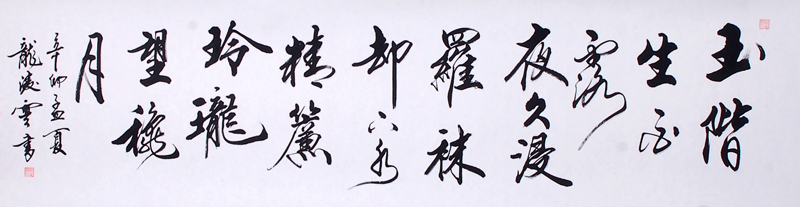 玉階
生白
露
夜久浸
羅袜
却下水
精簾
玲瓏
望穐
月
辛卯孟夏
龍凌雲書